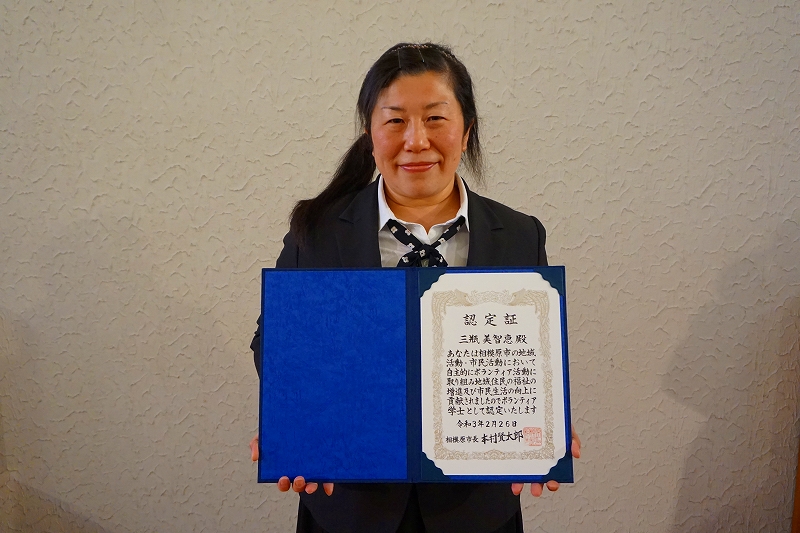 認定証
三瓶 美智恵 殿
あなたは相模原市の地域
活動・市民活動において
自主的にボランティア活動に
取り組み地域住民の福祉の
増進及び市民生活の向上に
貢献されましたのでボランティア
学士として認定いたします
令和3年2月26日
相模原市長 本村賢太郎